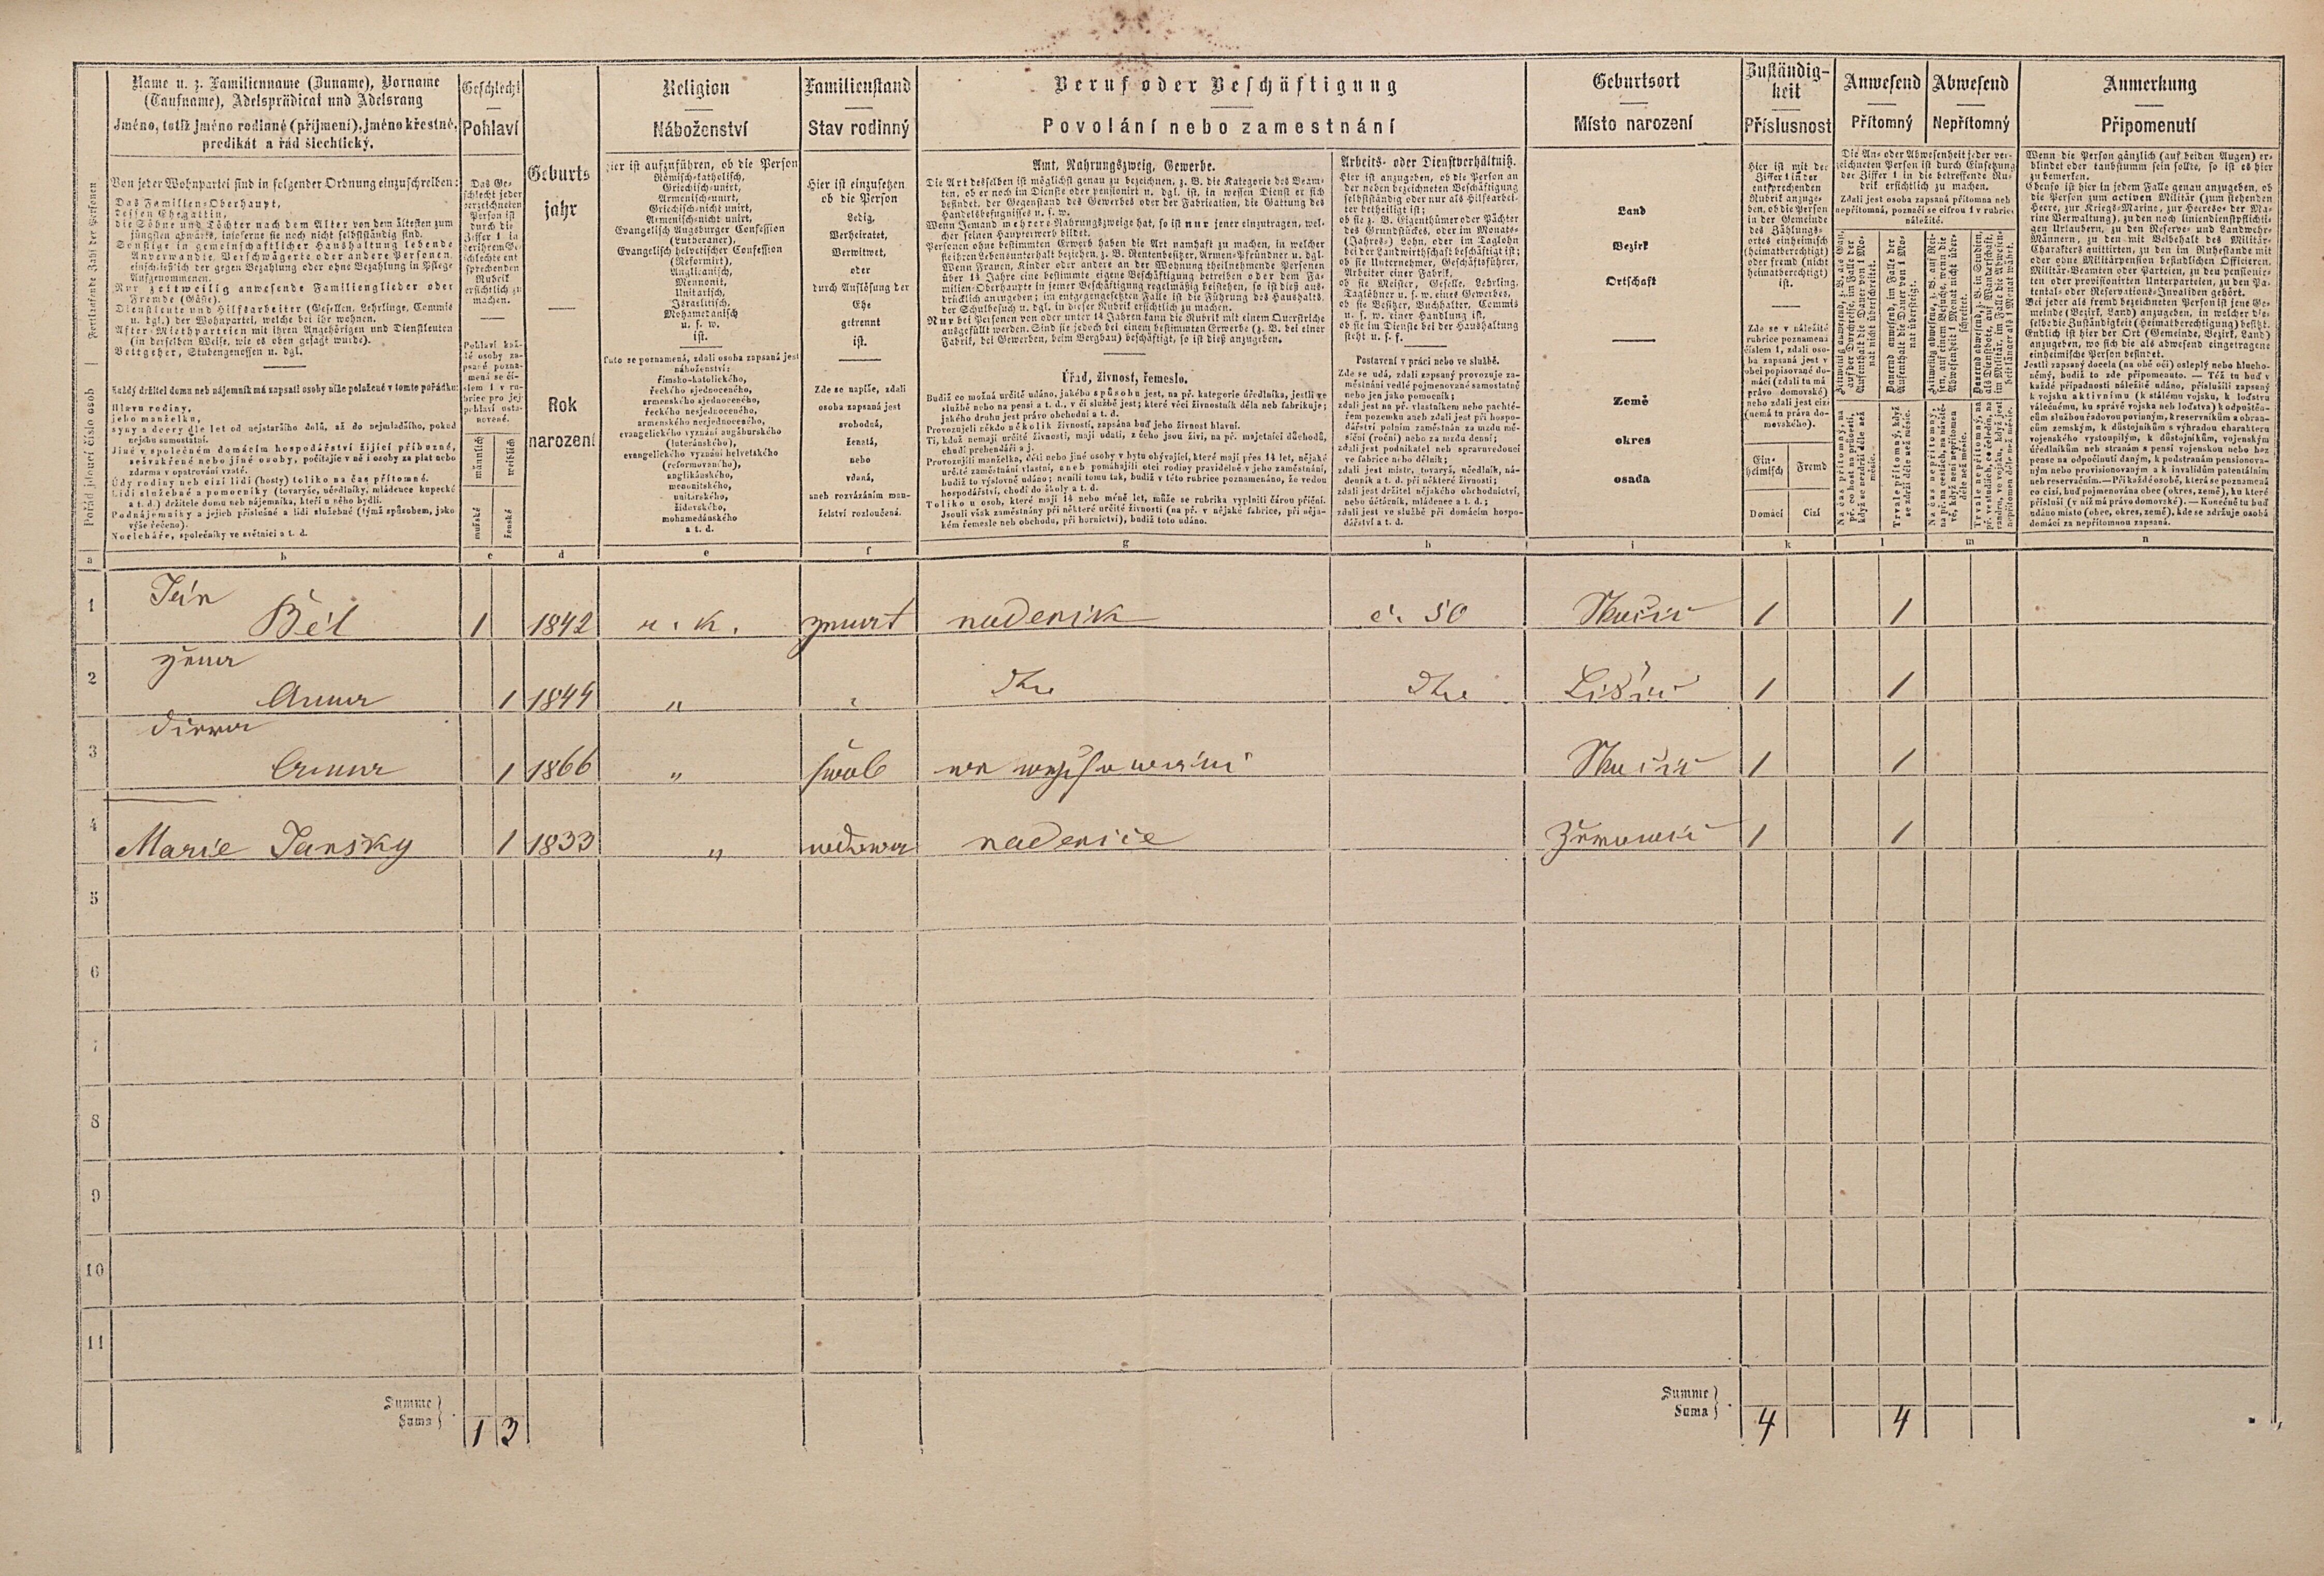 Name u. z. Familienname (Zuname), Vorname
(Taufname), Adelsprädicat und Adelsrang
Jméno, totiž jméno rodinné (příjmení), jméno křestné,
predikát a řád šlechtický.
Von jeder Wohnpartei sind in folgender Ordnung einzuschreiben:
Das Familien-Oberhaupt,
dessen Ehegattin,
die Söhne und Töchter nach dem Alter von dem ältesten zum
jüngsten abwärts, insoferne sie noch nicht selbstständig sind.
Sonstige in gemeinschaftlicher Haushaltung lebende
Anverwandte, Verschwägerte oder andere Personen,
einschließlich der gegen Bezahlung oder ohne Bezahlung in Pflege
Aufgenommenen.
Nur zeitweilig anwesende Familienglieder oder
Fremde (Gäste).
Dienstleute und Hilfsarbeiter (Gesellen, Lehrlinge, Commis
u. dgl.) der Wohnpartei, welche bei ihr wohnen.
After-Miethparteien mit ihren Angehörigen und Dienstleuten
(in derselben Weise, wie es oben gesagt wurde).
Bettgeher, Stubengenossen u. dgl.
Každý držitel domu neb nájemník má zapsati osoby níže položené v tomto pořádku:
Hlavu rodiny,
jeho manželku,
syny a dcery dle let od nejstaršího dolů, až do nejmladšího, pokud
nejsou samostatni.
Jiné v společném domácím hospodářství žijící příbuzné,
sešvakřené nebo jiné osoby, počítajíc v ně i osoby za plat nebo
zdarma v opatrování vzaté.
Údy rodiny neb cizí lidi (hosty) toliko na čas přítomné.
Lidi služebné a pomocníky (tovaryše, učedlníky, mládence kupecké
a t. d.) držitele domu neb nájemníka, kteří u něho bydlí.
Podnájemníky a jejich příslušné a lidi služebné (týmž spůsobem, jako
výše řečeno).
Nocleháře, společníky ve světnici a t. d.
Geschlecht
Pohlaví
Das Ge-
schlecht jeder
verzeichneten
Person ist
durch die
Ziffer 1 in
der ihrem Ge-
schlechte ent-
sprechenden
Rubrik
ersichtlich zu
machen.
männlich
weiblich
mužské
ženské
Geburts
jahr
Rok
narození
Religion
Náboženství
Hier ist aufzuführen, ob die Person
Römisch-katholisch,
Griechisch-unirt,
Armenisch-unirt,
Griechisch-nicht unirt,
Armenisch-nicht unirt,
Evangelisch Augsburger Confession
(Lutheraner),
Evangelisch helvetischer Confession
(Reformirt),
Anglicanisch,
Mennonit,
Unitarisch,
Israelitisch,
Mohamedanisch
u. s. w.
ist.
Tuto se poznamená, zdali osoba zapsaná jest
náboženství:
římsko-katolického,
řeckého sjednoceného,
armenského sjednoceného,
řeckého nesjednoceného,
armenského nesjednoceného,
evangelického vyznání augšburského
(luteránského),
evangelického vyznání helvetského
(reformovaného),
anglikánského,
menonitského,
unitárského,
židovského,
mohamedánského
a t. d.
Familienstand
Stav rodinný
Hier ist einzusetzen
ob die Person
ledig,
verheiratet,
verwitwet,
oder
durch Auflösung der
Ehe
getrennt
ist.
Zde se napíše, zdali
osoba zapsaná jest
svobodná,
ženatá,
nebo
vdaná,
aneb rozvázáním man-
želství rozloučená.
Beruf oder Beschäftigung
Povolání nebo zamestnání
Amt, Nahrungszweig, Gewerbe.
Die Art desselben ist möglichst genau zu bezeichnen, z. B. die Kategorie des Beam-
ten, ob er noch im Dienste oder pensionirt u. dgl. ist, in wessen Dienst er sich
befindet, der Gegenstand des Gewerbes oder der Fabrication, die Gattung des
Handelsbefugnisses u. s. w.
Wenn Jemand mehrere Nahrungszweige hat, so ist nur jener einzutragen, wel-
cher seinen Haupterwerb bildet.
Personen ohne bestimmten Erwerb haben die Art namhaft zu machen, in welcher
sie ihren Lebensunterhalt beziehen, z. B. Rentenbesitzer, Armen-Pfründner u. dgl.
Wenn Frauen, Kinder oder andere an der Wohnung theilnehmende Personen
über 14 Jahre eine bestimmte eigene Beschäftigung betreiben oder dem Fa-
milien-Oberhaupte in seiner Beschäftigung regelmäßig beistehen, so ist dieß aus-
drücklich anzugeben; im entgegengesetzten Falle ist die Führung des Haushalts,
der Schulbesuch u. dgl. in dieser Rubrik ersichtlich zu machen.
Nur bei Personen von oder unter 14 Jahren kann die Rubrik mit einem Querstriche
ausgefüllt werden. Sind sie jedoch bei einem bestimmten Erwerbe (z. B. bei einer
Fabrik, bei Gewerben, beim Bergbau) beschäftigt, so ist dieß anzugeben.
Úřad, živnost, řemeslo.
Budiž co možná určitě udáno, jakého spůsobu jest, na př. kategorie úředníka, jestli ve
službě nebo na pensi a t. d., v čí službě jest; které věci živnostník dělá neb fabrikuje;
jakého druhu jest právo obchodní a t. d.
Provozujeli někdo několik živností, zapsána buď jeho živnost hlavní.
Ti, kdož nemají určité živnosti, mají udati, z čeho jsou živi, na př. majetníci důchodů,
chudí prebendáři a j.
Provozujíli manželka, děti nebo jiné osoby v bytu obývající, které mají přes 14 let, nějaké
určité zaměstnání vlastní, aneb pomáhajíli otci rodiny pravidelně v jeho zaměstnání,
budiž to výslovně udáno; neníli tomu tak, budiž v této rubrice poznamenáno, že vedou
hospodářství, chodí do školy a t. d.
Toliko u osob, které mají 14 nebo méně let, může se rubrika vyplniti čárou příční.
Jsouli však zaměstnány při některé určité živnosti (na př. v nějaké fabrice, při něja-
kém řemesle neb obchodu, při hornictví), budiž toto udáno.
Arbeits- oder Dienstverhältniß.
Hier ist anzugeben, ob die Person an
der neben bezeichneten Beschäftigung
selbstständig oder nur als Hilfsarbei-
ter betheiligt ist;
ob sie z. B. Eigenthümer oder Pächter
des Grundstückes, oder im Monats-
(Jahres-) Lohn, oder im Taglohn
bei der Landwirthschaft beschäftigt ist;
ob sie Unternehmer, Geschäftsführer,
Arbeiter einer Fabrik,
ob sie Meister, Geselle, Lehrling,
Taglöhner u. s. w. eines Gewerbes,
ob sie Besitzer, Buchhalter, Commis
u. s. w. einer Handlung ist,
ob sie im Dienste bei der Haushaltung
steht u. s. f.
Postavení v práci nebo ve službě.
Zde se udá, zdali zapsaný provozuje za-
městnání vedlé pojmenované samostatně
nebo jen jako pomocník;
zdali jest na př. vlastníkem nebo pachtý-
řem pozemku aneb zdali jest při hospo-
dářství polním zaměstnán za mzdu mě-
síční (roční) nebo za mzdu denní;
zdali jest podnikatel neb spravovedoucí
ve fabrice nebo dělník;
zdali jest mistr, tovaryš, učedlník, ná-
denník a t. d. při některé živnosti;
zdali jest držitel nějakého obchodnictví,
nebo účtárník, mládenec a t. d.;
zdali jest ve službě při domácím hospo-
dářství a t. d.
Geburtsort
Místo narození
Land
Bezirk
Ortschaft
Země
okres
osada
Zuständig-
keit
Příslusnost
Hier ist mit der
Ziffer 1 in der
entsprechenden
Rubrik anzuge-
ben, ob die Person
in der Gemeinde
des Zählungs-
ortes einheimisch
(heimatberechtigt)
oder fremd (nicht
heimatberechtigt)
ist.
Zde se v náležité
rubrice poznamená
číslem 1, zdali oso-
ba zapsaná jest v
obci popisované do-
mácí (zdali tu má
právo domovské)
nebo zdali jest cizí
(nemá tu práva do-
movského).
Ein-
heimisch
Fremd
Domácí
Cizí
Anwesend
Přítomný
Abwesend
Nepřítomný
Die An- oder Abwesenheit jeder ver-
zeichneten Person ist durch Einsetzung
der Ziffer 1 in die betreffende Ru-
brik ersichtlich zu machen.
Zdali jest osoba zapsaná přítomna neb
nepřítomná, poznačí se cifrou 1 v rubrice
náležité.
Anmerkung
Připomenutí
Wenn die Person gänzlich (auf beiden Augen) er-
blindet oder taubstumm sein sollte, so ist es hier
zu bemerken.
Ebenso ist hier in jedem Falle genau anzugeben, ob
die Person zum activen Militär (zum stehenden
Heere, zur Kriegs-Marine, zur Heeres- oder Ma-
rine Verwaltung), zu den noch liniendienstpflichti-
gen Urlaubern, zu den Reserve- und Landwehr-
Männern, zu den mit Beibehalt des Militär-
Charakters quittirten, zu den im Ruhestande mit
oder ohne Militärpension befindlichen Officieren,
Militär-Beamten oder Parteien, zu den pensionir-
ten oder provisionirten Unterparteien, zu den Pa-
tental- oder Reservations-Invaliden gehört.
Bei jeder als fremd bezeichneten Person ist jene Ge-
meinde (Bezirk, Land) anzugeben, in welcher die-
selbe die Zuständigkeit (Heimatberechtigung) besitzt.
Endlich ist hier der Ort (Gemeinde, Bezirk, Land)
anzugeben, wo sich die als abwesend eingetragene
einheimische Person befindet.
a b c d e f g h i k l m n
1 Jan
Bél 1 1842 r. k. ženat nadenik č. 50 1 1
2 žena
Anna 1 1844 " " dto dto 1 1
3 dcera
Anna 1 1866 " svob 1 1
4 Marie Jansky 1 1833 " vdova nadenice 1 1
5
6
7
8
9
10
11
Summe
Suma 1 3
Summe
Suma 4 4